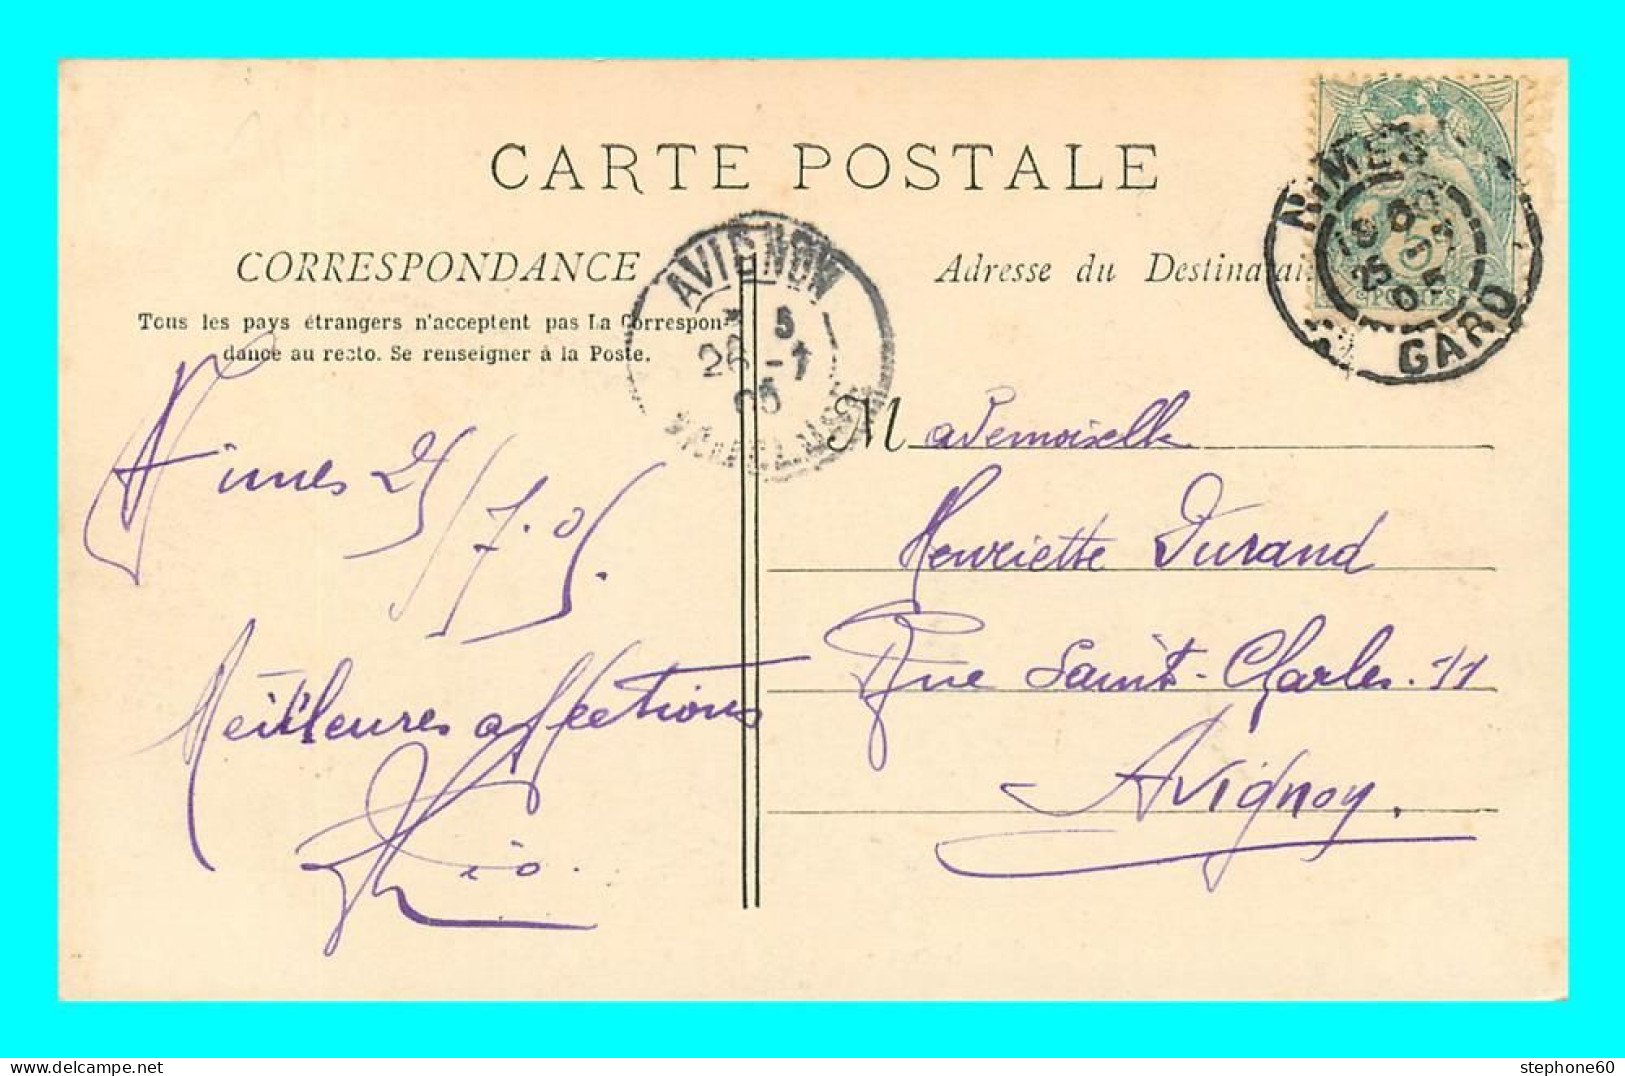 CARTE POSTALE
CORRESPONDANCE
Tous les pays étrangers n'acceptent pas La Correspon-
dance au recto. Se renseigner à la Poste.
Adresse du Destinatai
AVIGNON
5
26 -7
05
NIMES
25
05
GARD
POSTES
Nimes 25/7.05.
Meilleures affections
M ademoiselle
Henriette Durand
Rue Saint-Charles. 11
Avignon.
stephone60